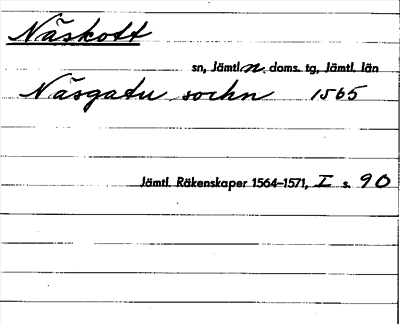 Näskott
sn, Jämtl. n. doms. tg, Jämtl. län
Näsgatu sochn 1565
Jämtl. Räkenskaper 1564-1571, I s. 90